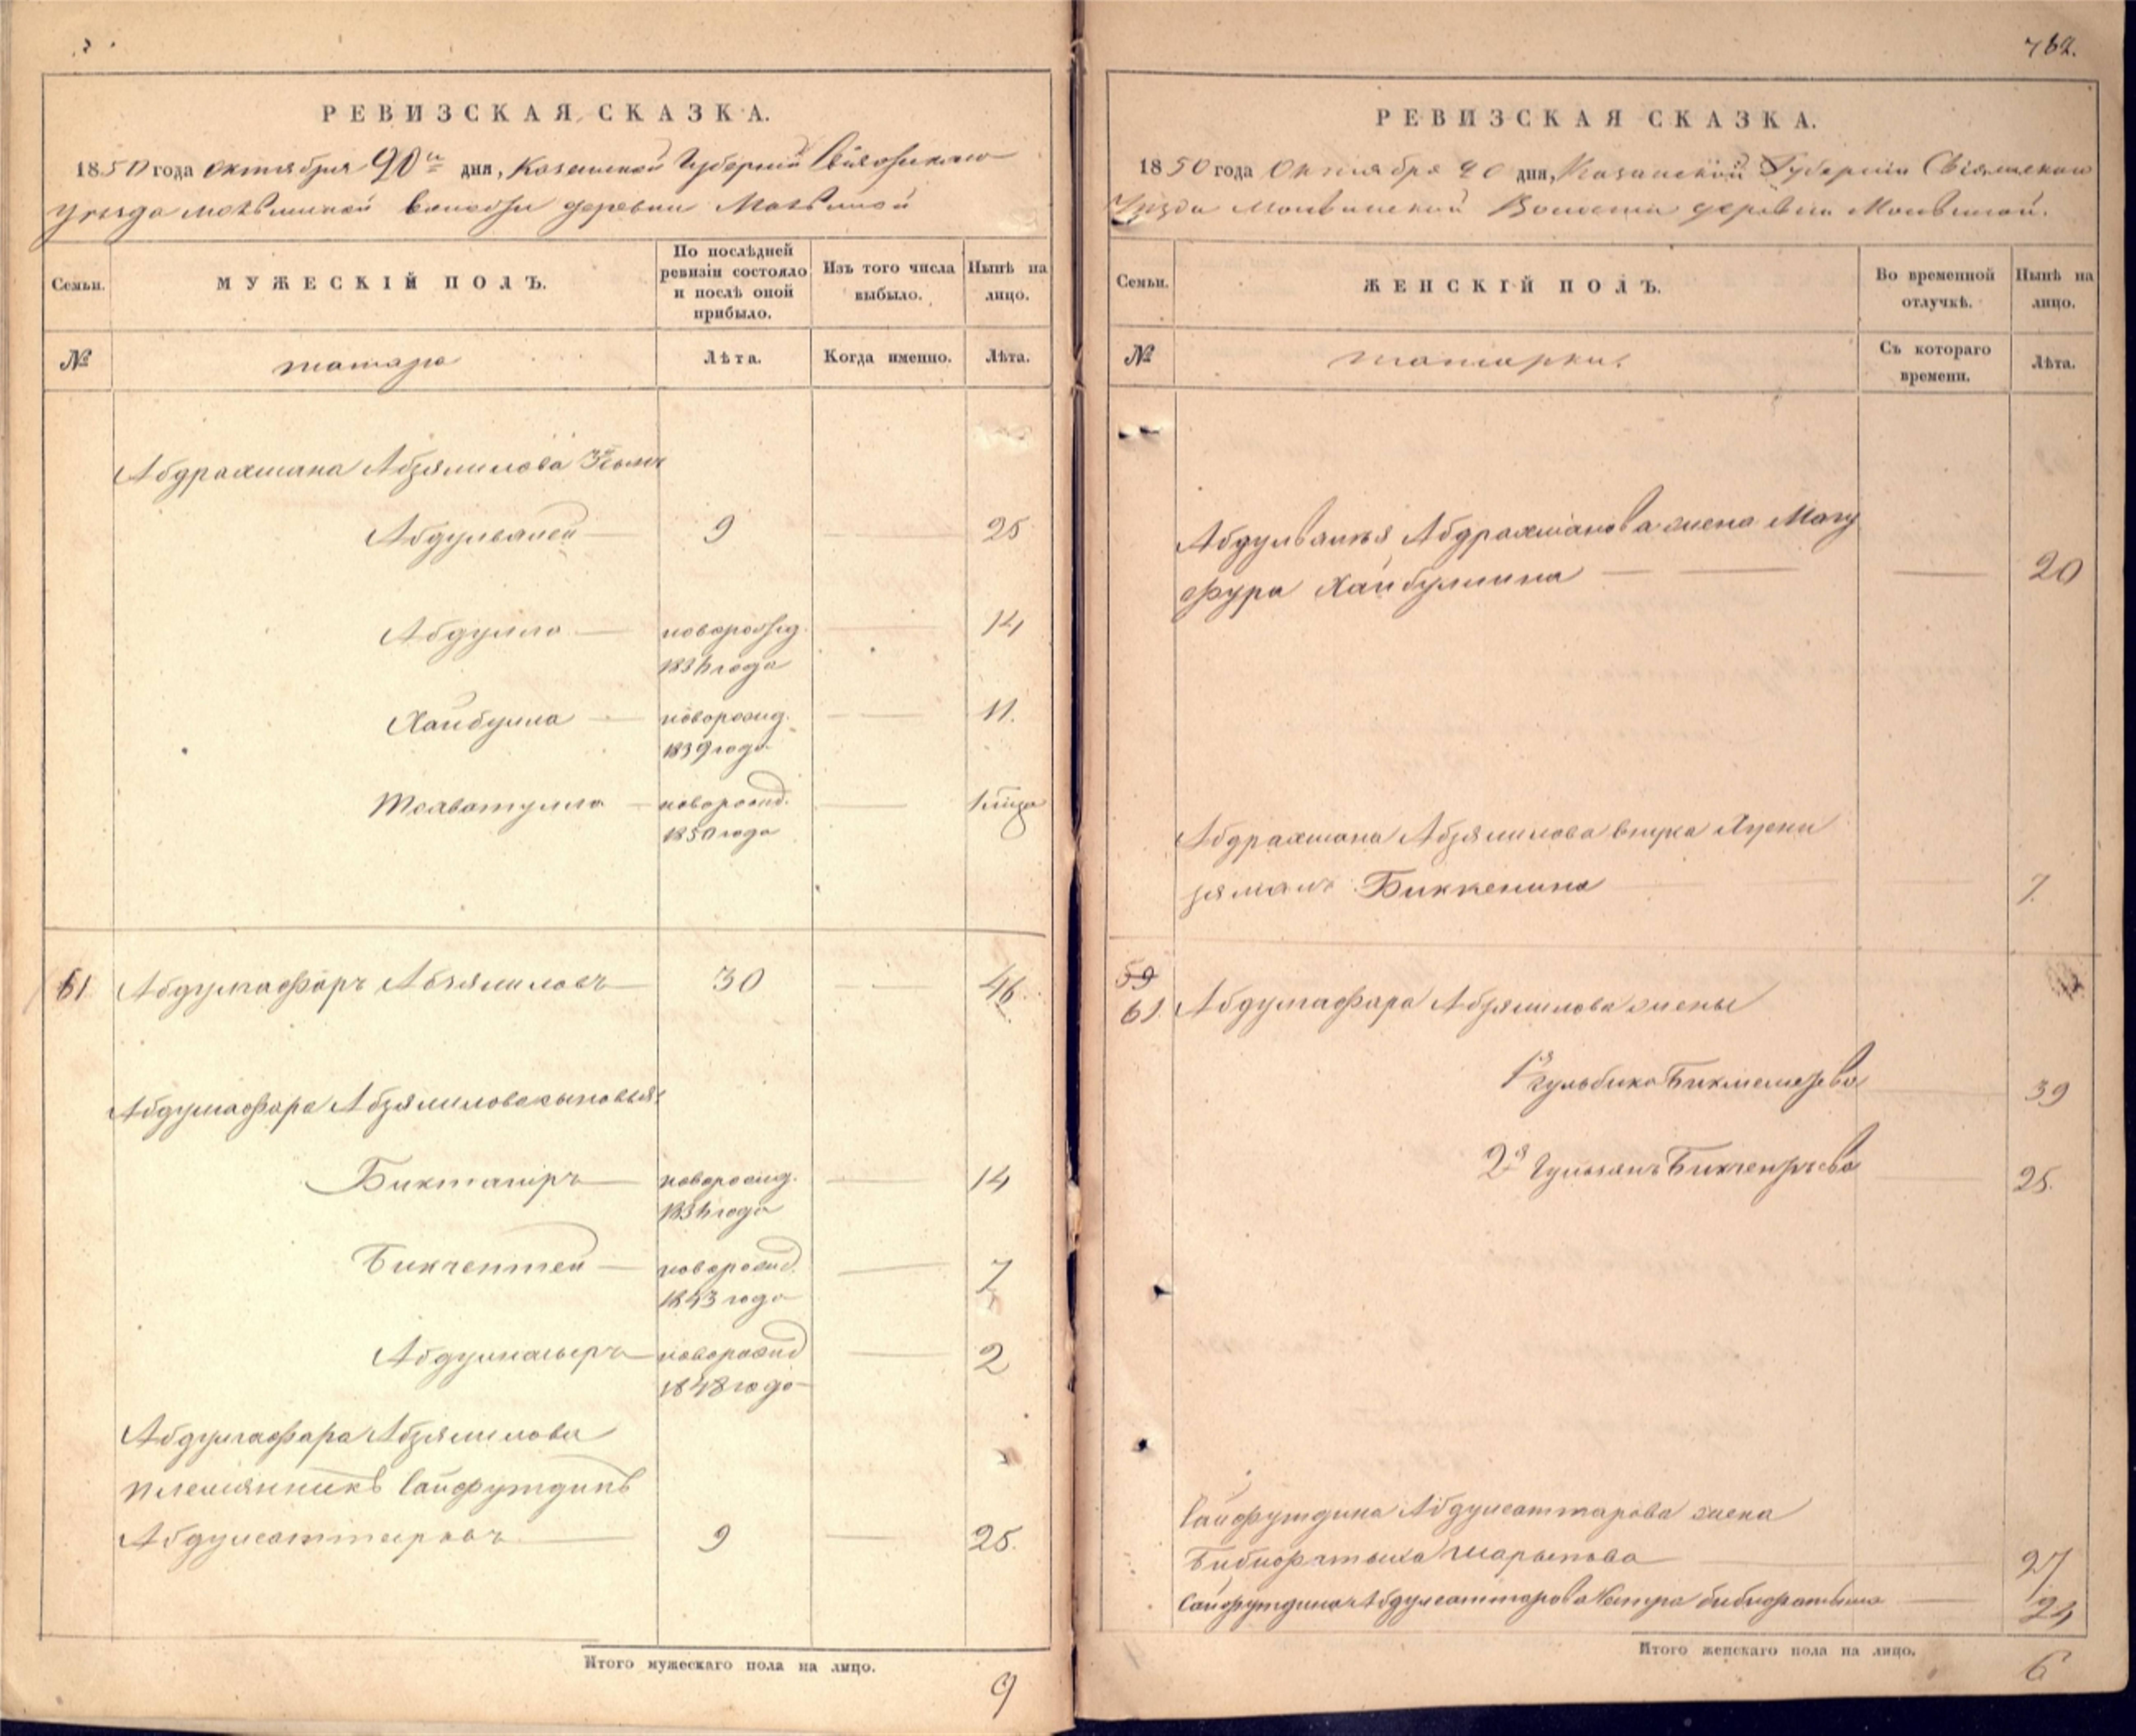 762.
РЕВИЗСКАЯ СКАЗКА.
1850 года октября 20 дня, Казанской Губернии Свіяжскаго
уезда волости деревни
Семьи.
МУЖЕСКІЙ ПОЛЪ.
По послѣдней ревизіи состояло и послѣ оной прибыло.
Изъ того числа выбыло.
Нынѣ на лицо.
№
татара
Лѣта.
Когда именно.
Лѣта.
Абдрахмана Абзялилова
Абдулвалей — 9 — 25
Абдулла — новорожд. — 14
года
Хайбулла — новорожд. — 11.
1839 года
новорожд. —
1850 года
61. Абдулгафаръ Абзялиловъ — 30 — 46.
Абдулгафара Абзялилова сыновья:
Биктагиръ — новорожд. — 14
года
Бикчентей — новорожд. — 7
1843 года
новорожд — 2
1848 года
Абдулгафара Абзялилова
племянникъ Сайфутдинъ
Абдулсаттаровъ — 9 — 25.
Итого мужескаго пола на лицо.
9
РЕВИЗСКАЯ СКАЗКА.
1850 года Октября 20 дня, Казанской Губерніи Свіяжскаго
Уѣзда Волости деревни
Семьи.
ЖЕНСКІЙ ПОЛЪ.
Во временной отлучкѣ.
Нынѣ на лицо.
№
татарки.
Съ котораго времени.
Лѣта.
Абдулвалея Абдрахманова жена Магу
фура Хайбуллина — — 20
Абдрахмана Абзялилова внука Хусни
зямалъ Биккенина 7.
59
61. Абдулгафара Абзялилова жены
1я Гульбика 39
2я 25.
Сайфутдина Абдулсаттарова жена
Шарыпова 27
Сайфутдина Абдулсаттарова сестра — 24
Итого женскаго пола на лицо.
6